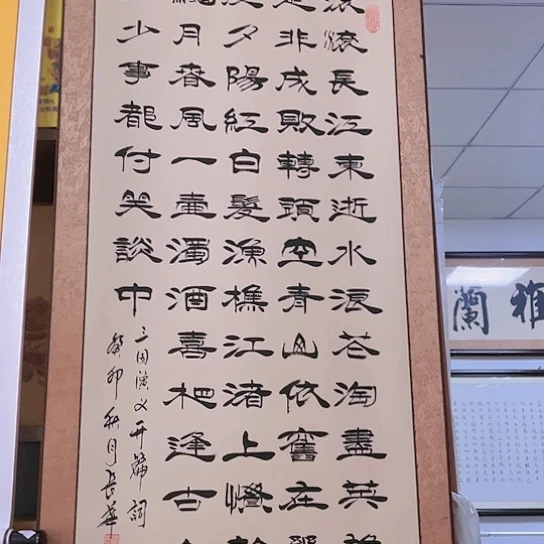 滾滾長江東逝水浪花淘盡英
是非成敗轉頭空青山依舊在
度夕陽紅白髮漁樵江渚上慣
月春風一壺濁酒喜相逢古
少事都付笑談中
三国演义开篇詞
癸卯秋月長華
雅蘭